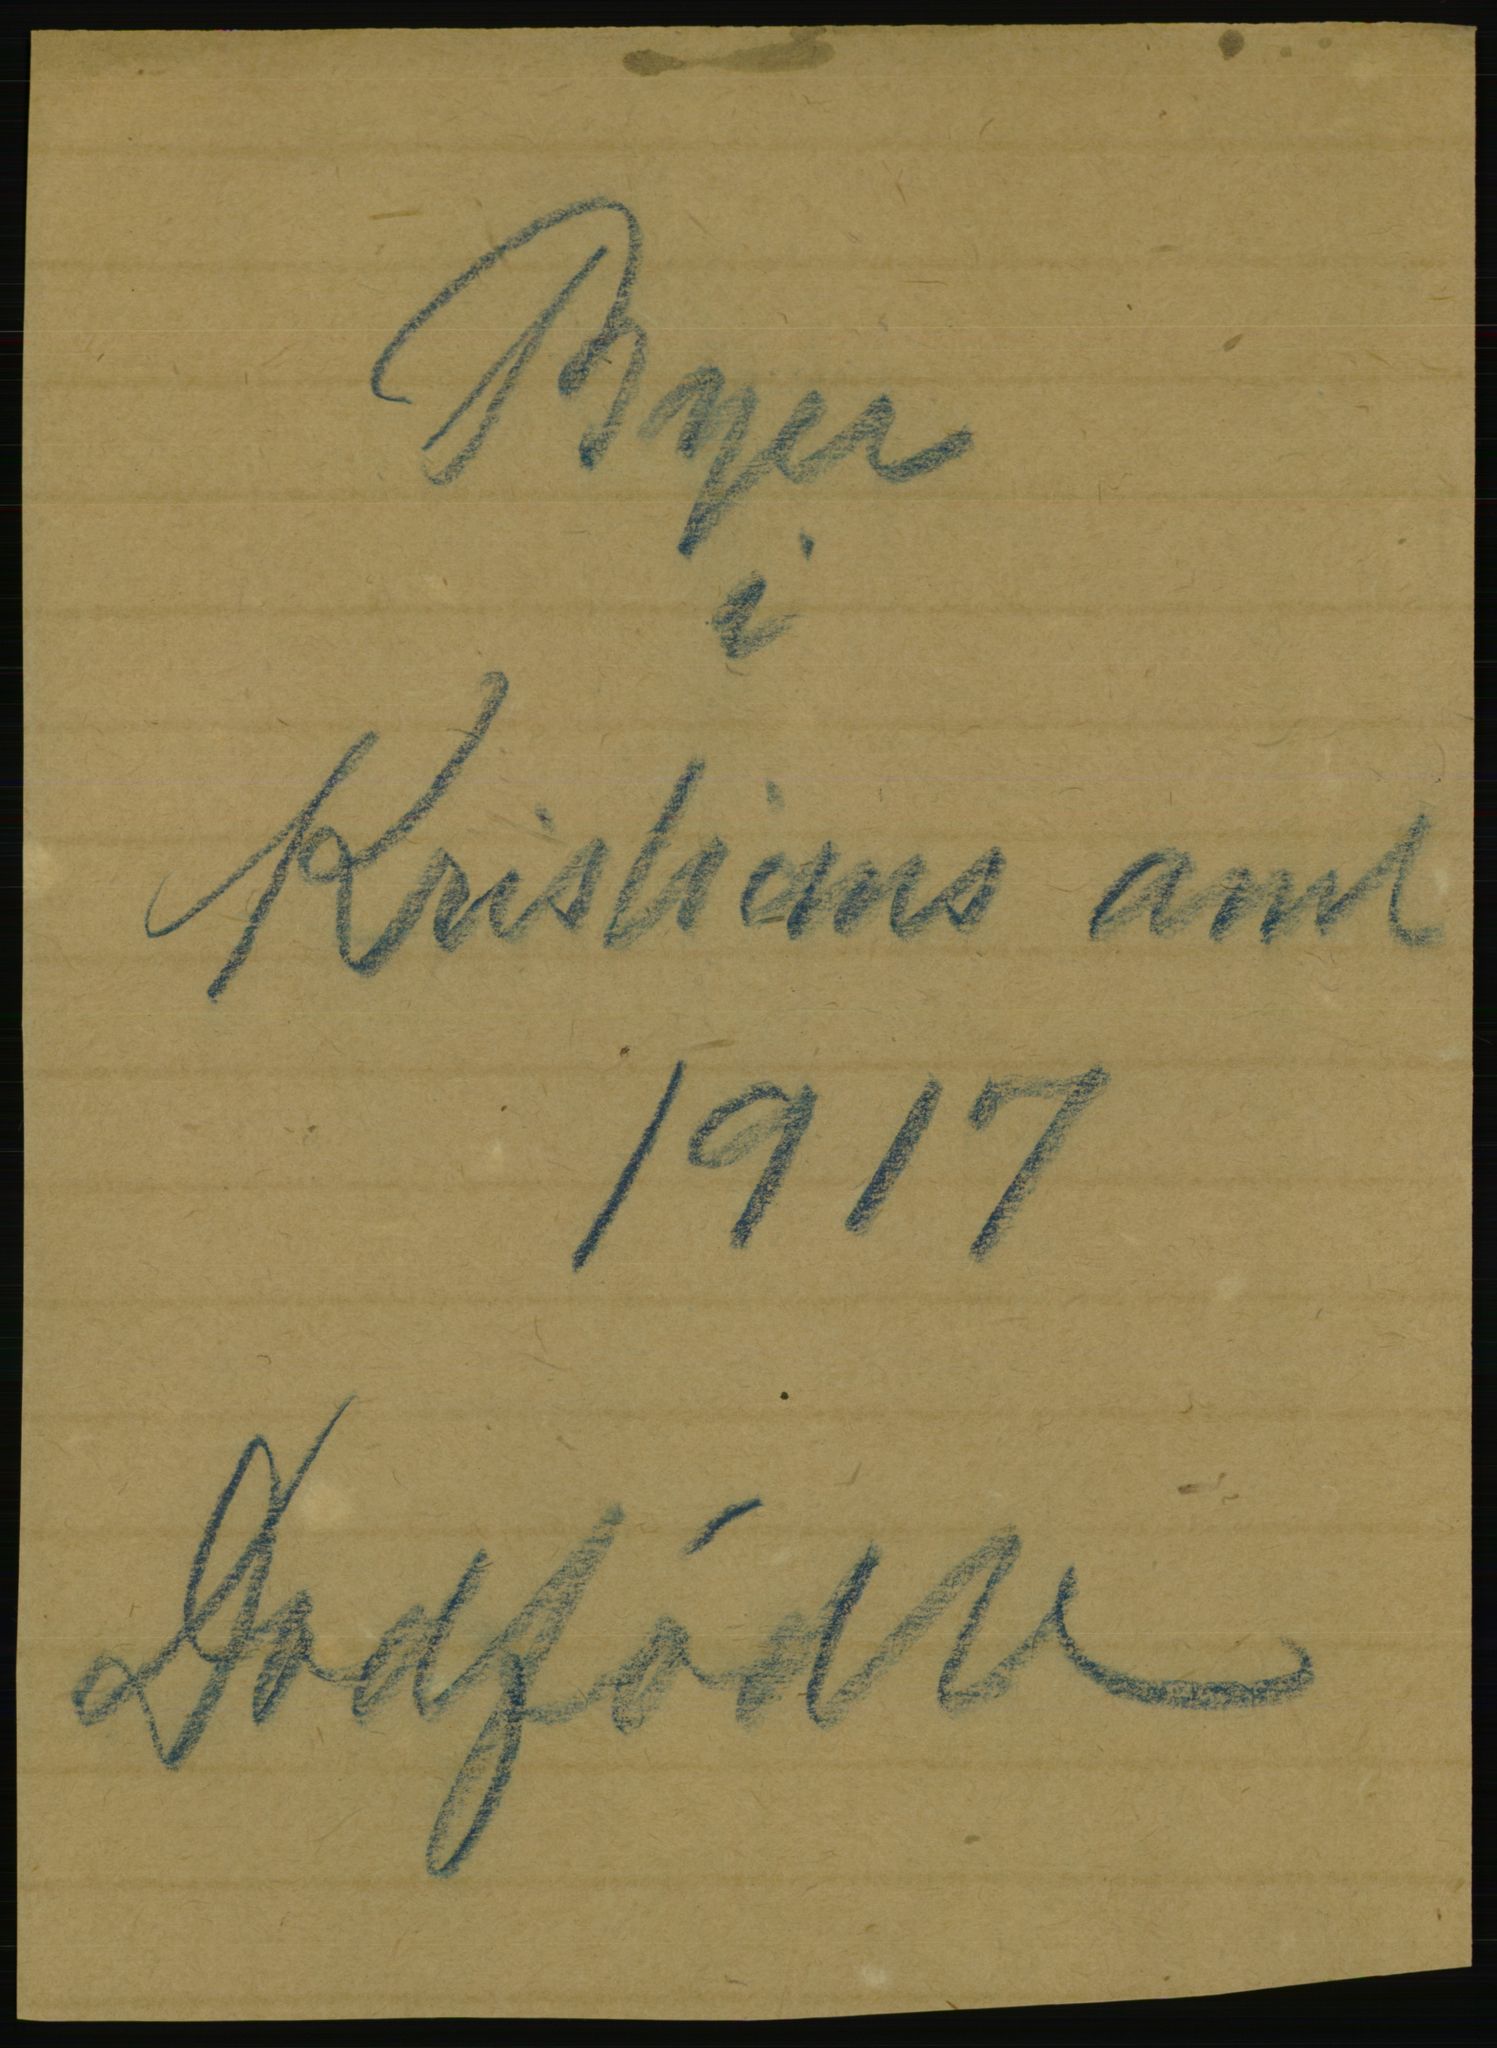 Byer
i
Kristians amt
1917
Dødfødte